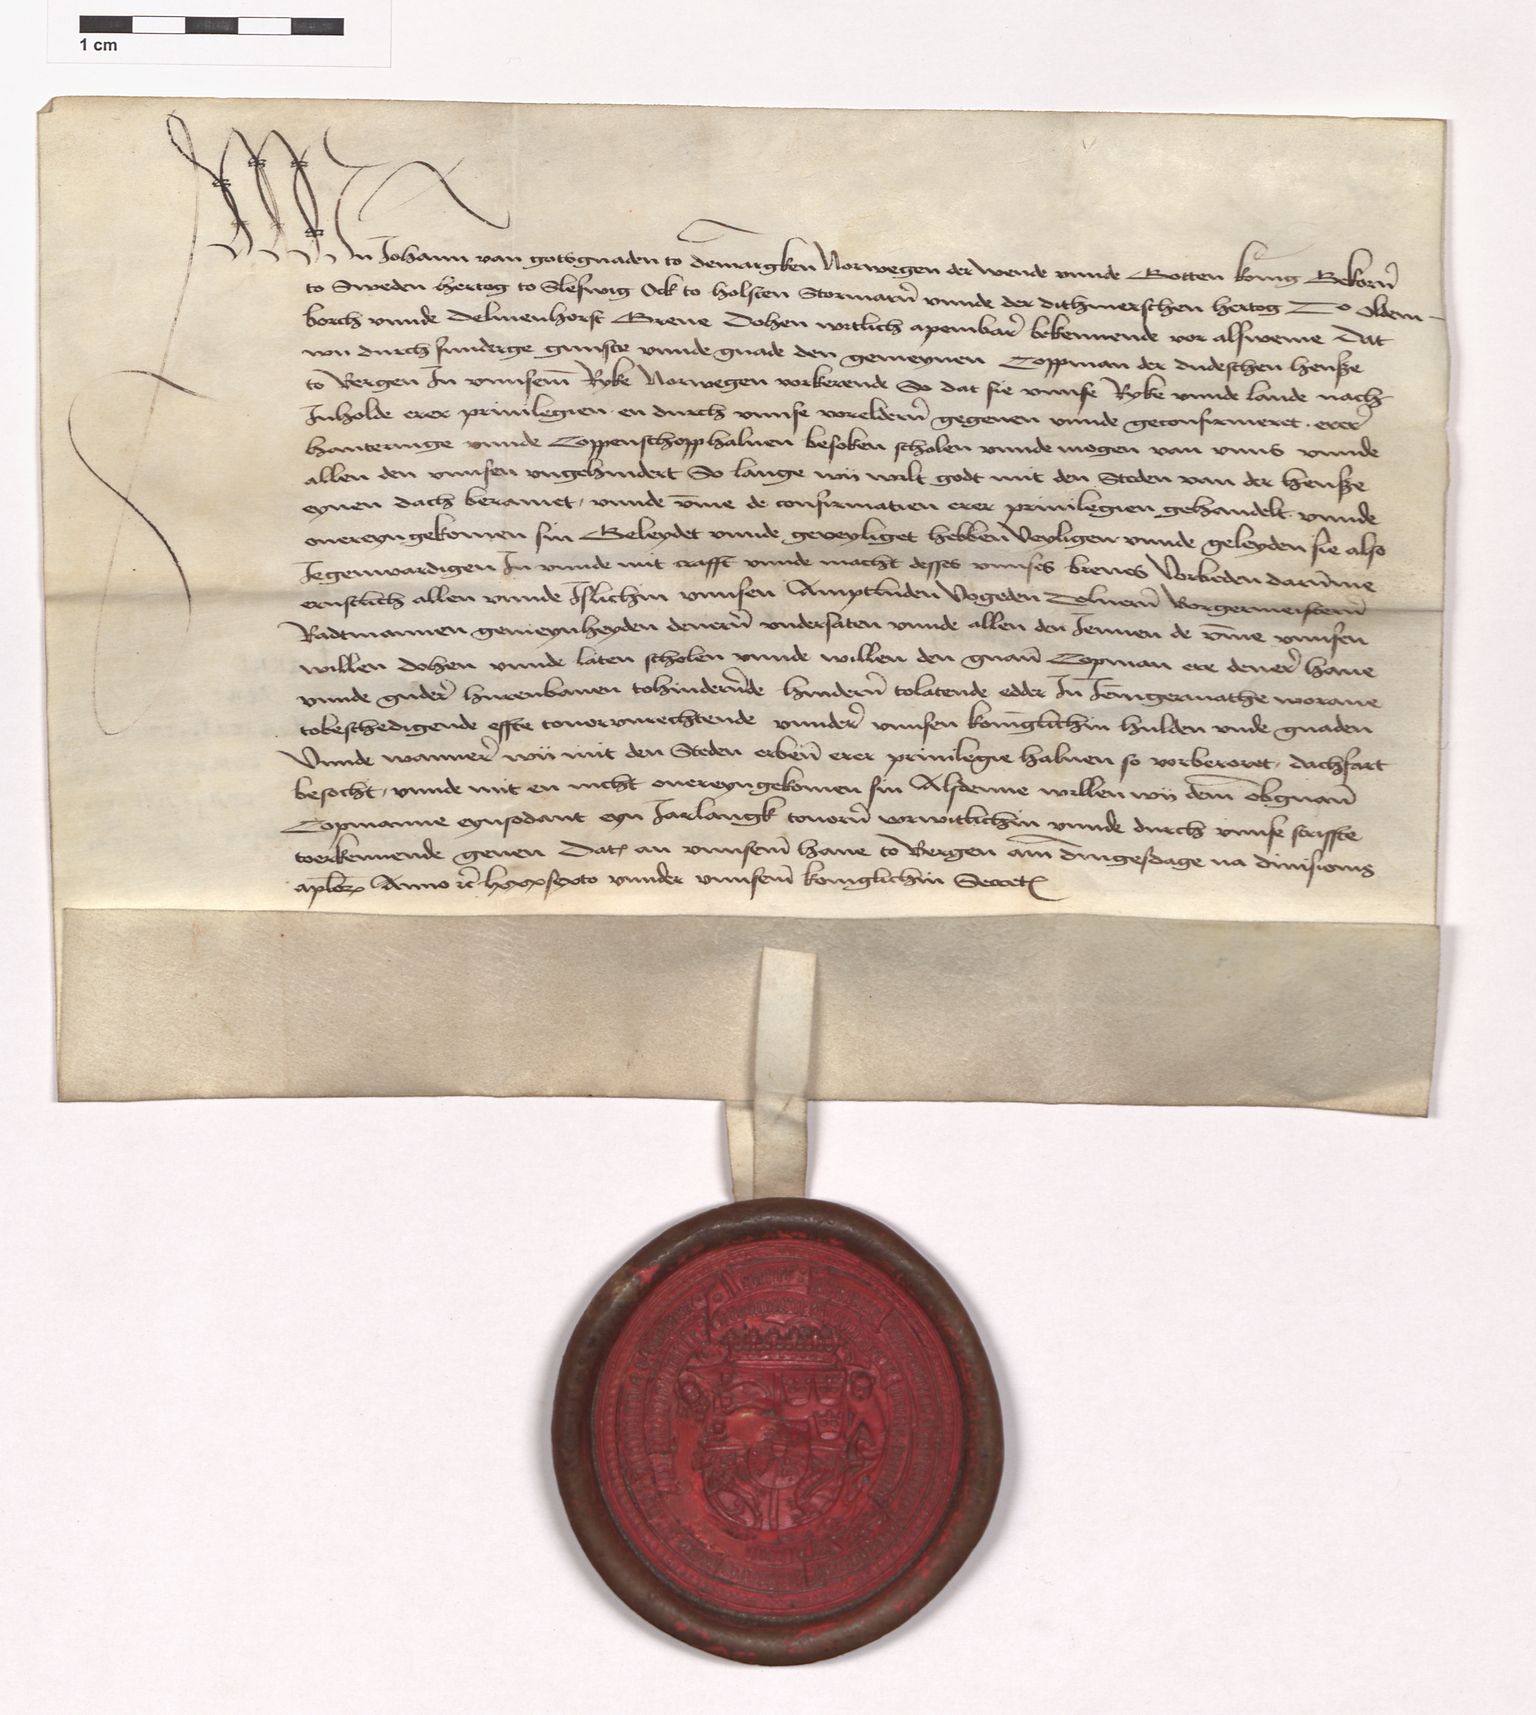 1 cm
Wy Johann van gotsgnaden to Denmargken Norwegen der Wende vnnde Gotten konig Gekorn̄
to Sweden hertog to Sleswig Ock to holsten Stormarn̄ vnnde der dithmerschen hertog To Oldem-
borch vnnde Delmenhorst Greue Dohen witlich apembar̄ bekennende vor alsweme Dat
wii durch sunderge gunste vnnde gnade den gemeynen Coppman der dudeschen hensze
to Bergen In vnnsem̄ Ryke Norwegen vorkerende So dat sie vnnse Ryke vnnde lande nach
Inholde erer priuilegien en durch vnnse voreldern̄ gegeuen vnnde geconfirmeret erer̄
hanteringe vnnde Coppenschopp haluen besoken scholen vnnde mogen van vnns vnnde
allen den vnnsen vngehindert So lange wii wilt godt mit den Steden van der hensze
eynen dach beramet, vnnde vm̄e de confirmatien erer priuilegien gehandelt vnnde
ouereyngekomen sin Geleydet vnnde geveyliget hebben Veyligen vnnde geleyden sie also
Jegenwardigen In vnnde mit crafft vnnde macht desses vnnses breues Vorbeden darum̄e
ernstlich allen vnnde Islichin vnnsen Amptluden Vogeden Tolnern̄ Borgermeistern̄
Radtmannen gemeynheyden denern̄ vndersaten vnnde allen den Jennen de vm̄e vnnsen
willen dohen vnnde laten scholen vnnde willen den gnan̄ Copman ere dener̄ haue
vnnde guder̄ hirenbauen tohindern̄de hindern̄ tolatende edder In Jenigermathe worane
tobeschedigende effte touorvnrechtende vnnder̄ vnnsen koniglichin hulden vnde gnaden
Vnnde wanner̄ wii mit den Steden erben̄ erer priuilegie haluen so vorberoret, dachfart
besocht, vnnde mit en nicht ouereyngekomen sin Alsdenne willen wii dem̄ obgnan̄
Copmanne eynsodant eyn Jarlangk touorn̄ vorwitlichin vnnde durch vnnse scriffte
toerkennende geuen Dat̄ an vnnsem̄ haue to Bergen am̄ dingesdage na diuisionis
ap̄lor̄ Anno rc̄ lxxxsexto vnnder vnnsem̄ koniglichin Secret̄